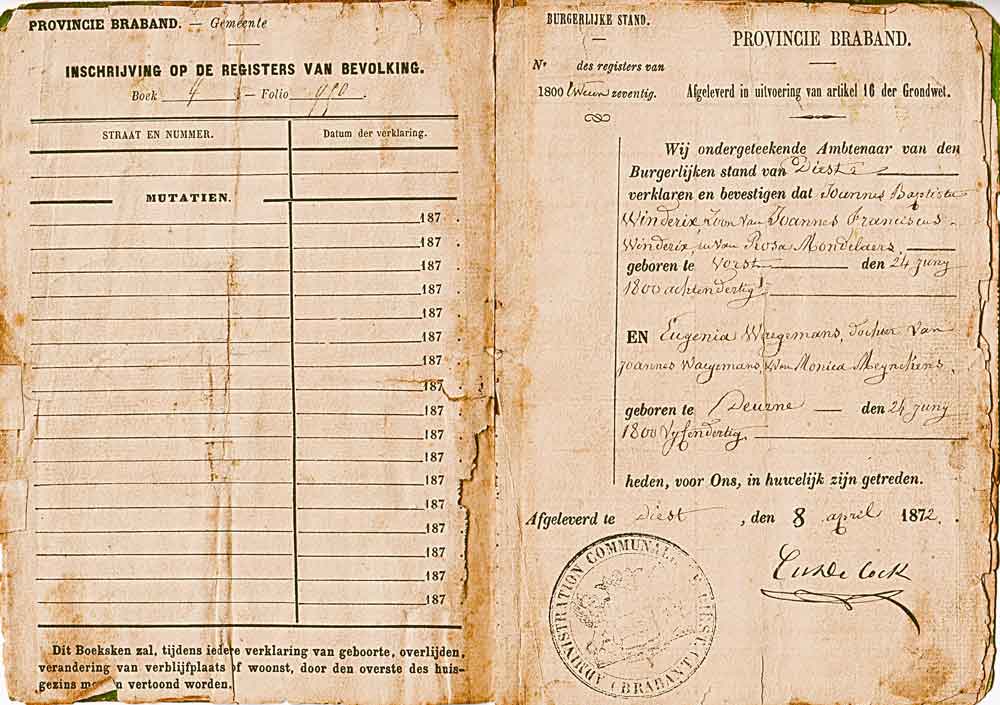 PROVINCIE BRABAND. — Gemeente
INSCHRIJVING OP DE REGISTERS VAN BEVOLKING.
Boek 4 — Folio 990.
STRAAT EN NUMMER. Datum der verklaring.
MUTATIEN.
187 .
187 .
187 .
187 .
187 .
187 .
187 .
187
187 .
187 .
187 .
187 .
187 .
187 .
187 .
187 .
187 .
Dit Boeksken zal, tijdens iedere verklaring van geboorte, overlijden,
verandering van verblijfplaats of woonst, door den overste des huis-
gezins vertoond worden.
BURGERLIJKE STAND.
N^r des registers van
1800 tween zeventig.
PROVINCIE BRABAND.
Afgeleverd in uitvoering van artikel 16 der Grondwet.
Wij ondergeteekende Ambtenaar van den
Burgerlijken stand van Diest
verklaren en bevestigen dat Joannes Baptista
Winderix, zoon van Joannes Franciscus
Winderix, en van Rosa Mondelaers,
geboren te Vorst den 24 juny
1800 achtendertig
EN Eugenia Waegemans, dochter van
Joannes Waegemans, & van Monica Meynckens,
geboren te Deurne — den 24 juny
1800 vyfendertig
heden, voor Ons, in huwelijk zijn getreden.
Afgeleverd te Diest, den 8 april 1872.
ADMINISTRATION COMMUNALE DE DIEST (BRABANT)